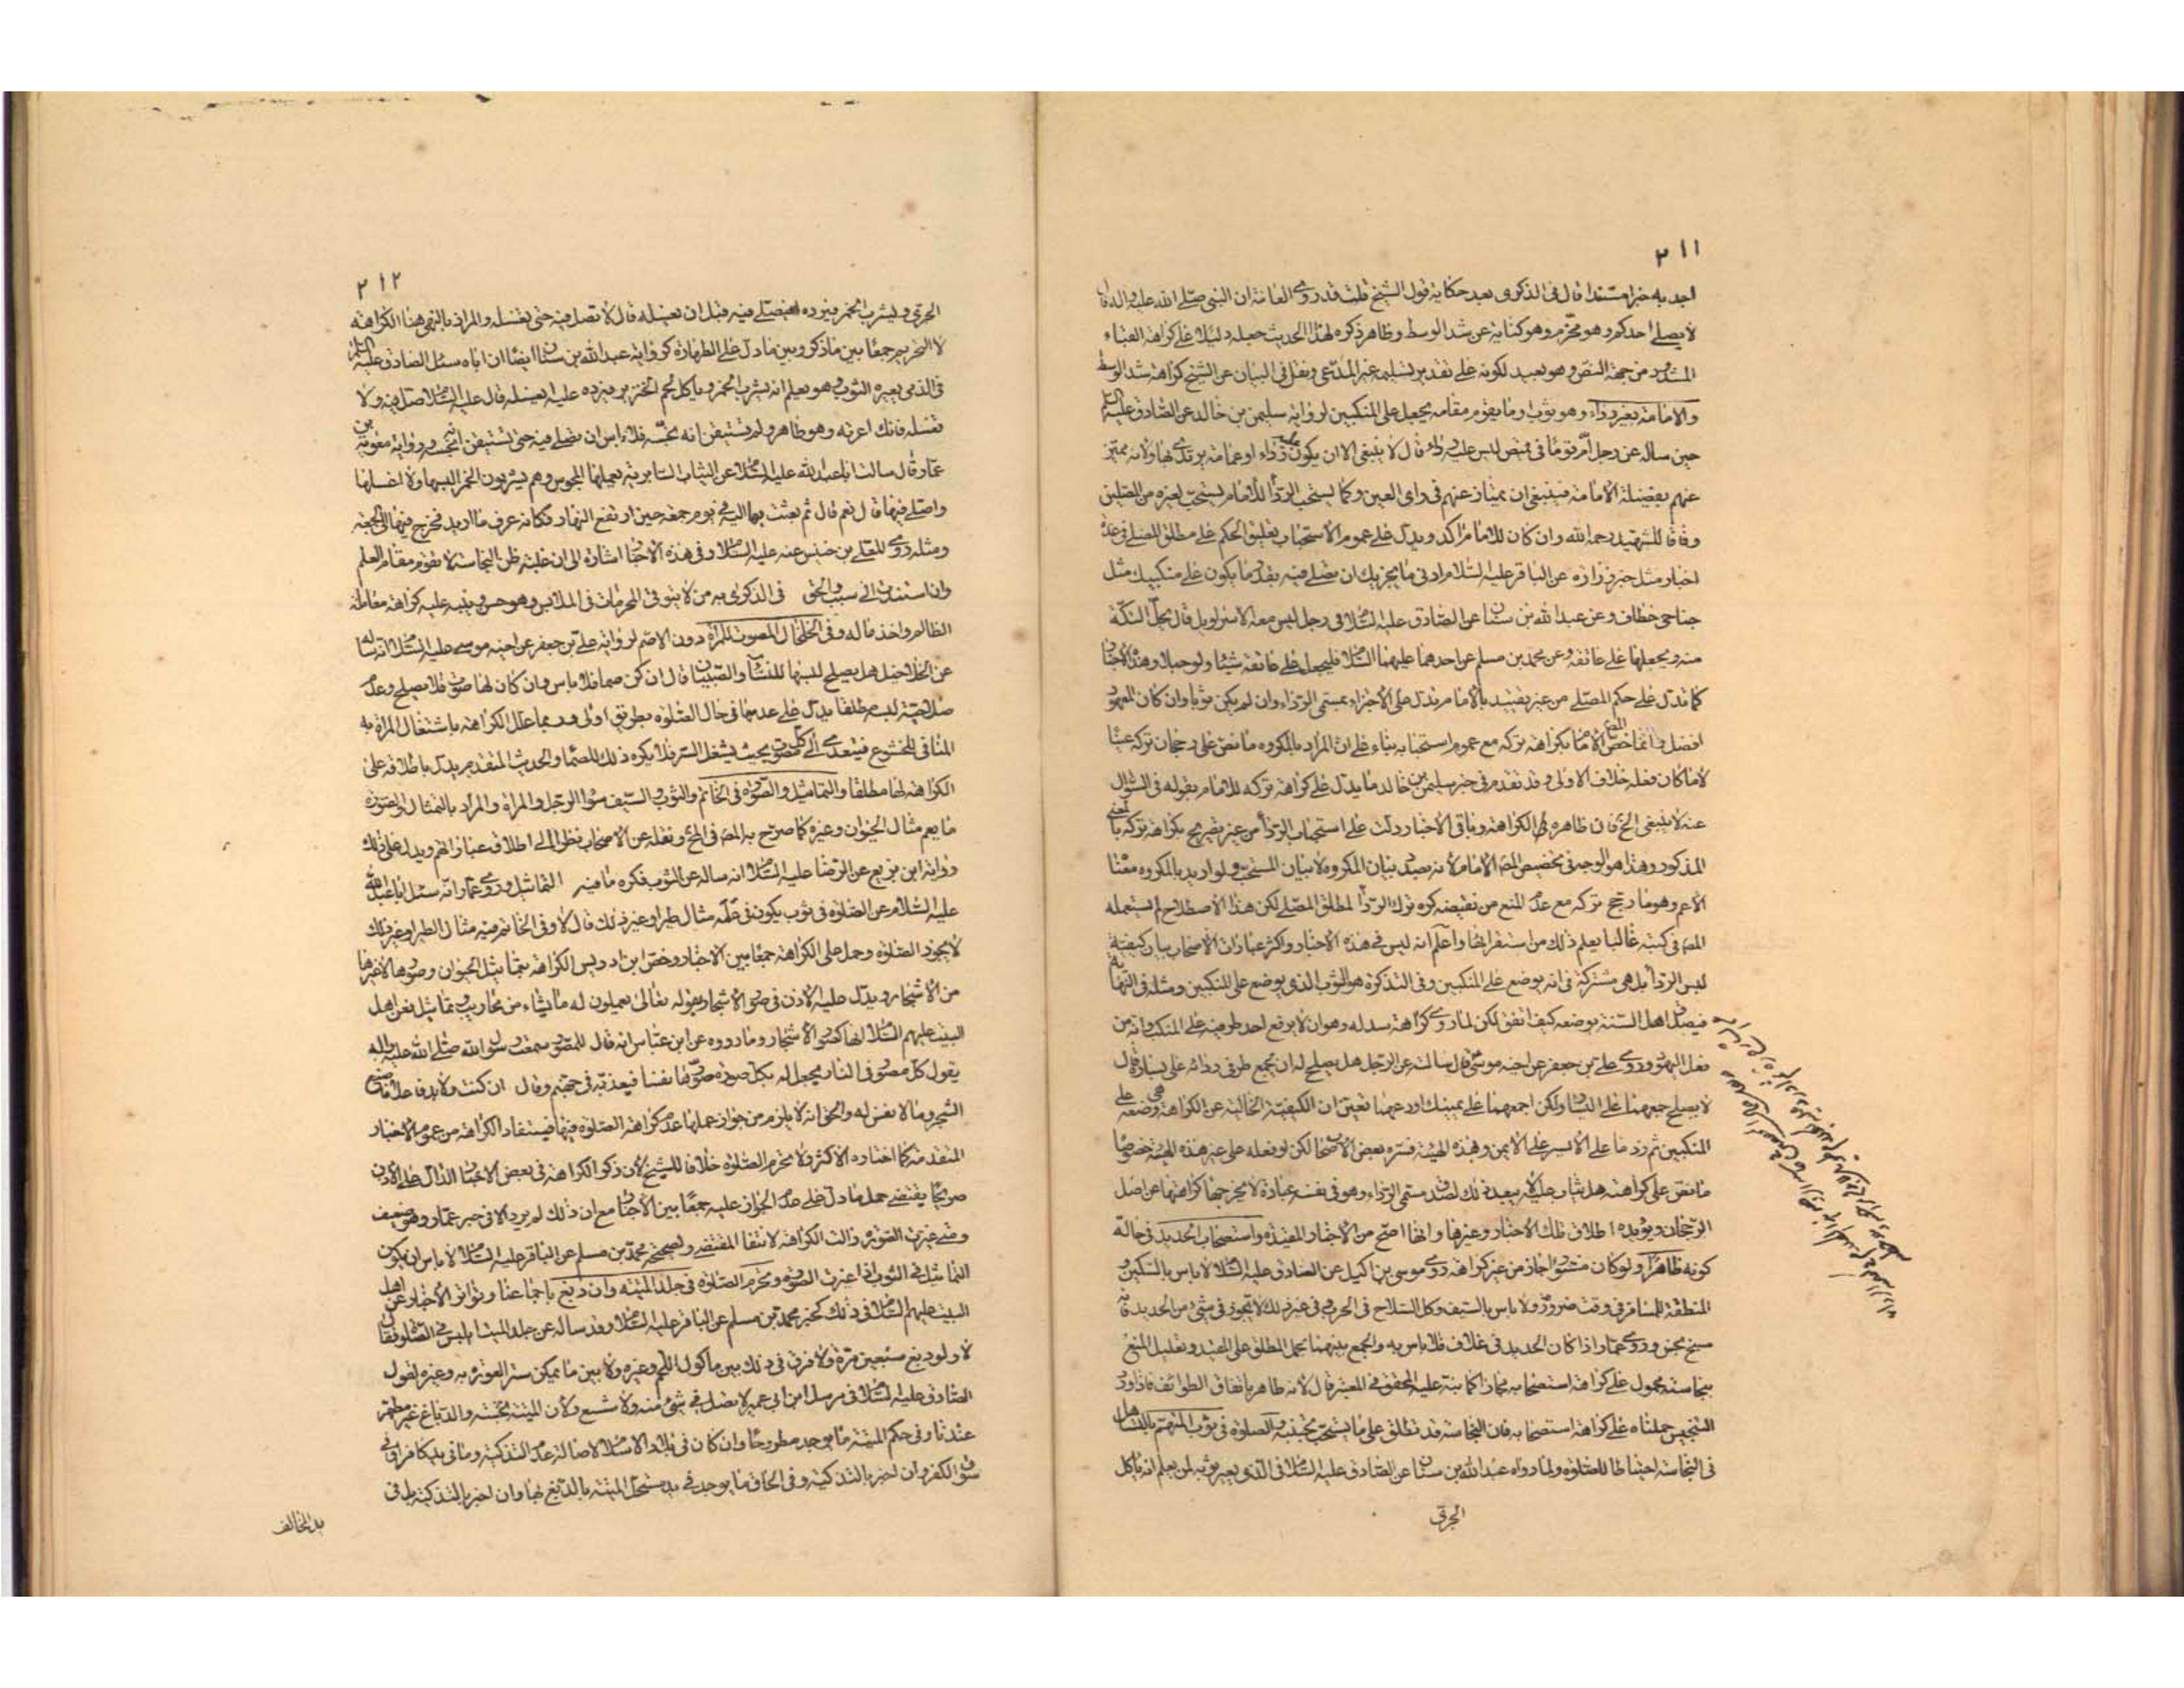 ٢١١
اجد به خبرا مستندا قال فى الذكرى بعد حكاية قول الشيخ قلت قد روى العامة ان النبى صلى الله عليه واله قال
لا يصلى احدكم وهو محزم وهو كناية عن شد الوسط وظاهر ذكره لهذا الحديث جعله دليلا على كراهة القباء
المشدود من جهة النص وهو بعيد لكونه على تقدير تسليمه غير المدعى ونقل فى البيان عن الشيخ كراهة شد الوسط
والامامة بغير رداء وهو ثوب او ما يقوم مقامه يجعل على المنكبين لرواية سليمن بن خالد عن الصادق عليه السلم
حين ساله عن رجل ام قوما فى قميص ليس عليه رداء قال لا ينبغى الا ان يكون عليه رداء او عمامة يرتدى بها ولانه يميز
عنهم بفضيلة الامامة فينبغى ان يمتاز عنهم فى راى العين وكما يستحب الردأ للامام يستحب لغيره من المصلين
وفاقا للشهيد رحمه الله وان كان للامام اكد ويدل على عموم الاستحباب تعليق الحكم على مطلق المصلى فى عدة
اخبار مثل خبر زرارة عن الباقر عليه السلام ادنى ما يجزيك ان تصلى فيه بقدر ما يكون على منكبيك مثل
جناحى خطاف وعن عبد الله بن سنان عن الصادق عليه السلام فى رجل ليس معه الا سراويل قال يحل التكة
منه ويجعلها على عاتقه وعن محمد بن مسلم عن احدهما عليهما السلام فليجعل على عاتقه شيئا ولو حبلا وهذه الاخبار
كما تدل على حكم المصلى من غير تقييد بالامام تدل على الاجزاء بمسمى الرداء وان لم يكن ثوبا وان كان المعهود
افضل وانما خص المص الامام بكراهة تركه مع عموم استحبابه بناء على ان المراد بالمكروه ما نص على رجحان تركه عينا
لا ما كان فعله خلاف الاولى وقد تقدم فى خبر سليمن بن خالد ما يدل على كراهة تركه للامام بقوله فى السؤال
عنه لا ينبغى الخ فان ظاهره الكراهة وباقى الاخبار دلت على استحباب الردأ من غير تصريح بكراهة تركه بالمعنى
المذكور وهذا هو الوجه فى تخصيص المص الامام لانه بصدد بيان المكروه لا بيان المستحب ولو اريد بالمكروه معناه
الاعم وهو ما رجح تركه مع عدم المنع من نقيضه كره ترك الردأ لمطلق المصلى لكن هذا الاصطلاح لم يستعمله
المص فى كتبه غالبا يعلم ذلك من استقرائها واعلم انه ليس فى هذه الاخبار واكثر عبارات الاصحاب بيان كيفية
لبس الردأ بل هى مشتركة فى انه يوضع على المنكبين وفى التذكرة هو الثوب الذى يوضع على المنكبين ومثله فى النهاية
فيصدق اصل السنة بوضعه كيف اتفق لكن لما روى كراهة سدله وهو ان لا يرفع احد طرفيه على المنكب وانه من
فعل اليهود وروى على بن جعفر عن اخيه موسى قال سالته عن الرجل هل يصلح له ان يجمع طرفى ردائه على يساره قال
لا يصلح جمعهما على اليسار ولكن اجمعهما على يمينك او دعهما تعين ان الكيفية الخالية عن الكراهة هى وضعه على
المنكبين ثم رد ما على الايسر على الايمن وبهذه الهيئة فسره بعض الاصحاب لكن لو فعله على غير هذه الهيئة خصوصا
ما نص على كراهته هل يثاب عليه لا يبعد ذلك لصدق مسمى الرداء وهو فى نفسه عبادة لا يخرجها كراهتها عن اصل
الرجحان ويؤيده اطلاق تلك الاخبار وغيرها وانها اصح من الاخبار المقيدة واستصحاب الحديد فى حالة
كونه ظاهرا ولو كان مستورا جاز من غير كراهة روى موسى بن اكيل عن الصادق عليه السلام لا باس بالسكين و
المنطقة للمسافر فى وقت ضرورة ولا باس بالسيف وكل السلاح فى الحرب وفى غير ذلك لا تجوز فى شئ من الحديد فانه
مسخ نجس وروى عمار اذا كان الحديد فى غلاف فلا باس به والجمع بينهما بحمل المطلق على المقيد وتعليل المنع
بنجاسته محمول على كراهة استصحابه مجازا كما نبه عليه المحقق فى المعتبر قال لانه طاهر باتفاق الطوائف فاذا ورد
التنجيس حملناه على كراهة استصحابه فان النجاسة قد تطلق على ما يستحب تجنبه والصلوة فى ثوب المتهم بالتساهل
فى النجاسة احتياطا للصلوة ولما رواه عبد الله بن سنان عن الصادق عليه السلام فى الذى يعير ثوبه لمن يعلم انه ياكل
الجرى
٢١٢
الجرى ويشرب الخمر فيرده ايصلى فيه قبل ان يغسله قال لا يصل فيه حتى يغسله والمراد بالنهى هنا الكراهة
لا التحريم جمعا بين ما ذكر وبين ما دل على الطهارة كرواية عبد الله بن سنان ايضا ان اباه سئل الصادق عليه السلم
فى الذمى يعيره الثوب وهو يعلم انه يشرب الخمر وياكل لحم الخنزير فيرده عليه ايغسله قال عليه السلام صل فيه ولا
تغسله فانك اعرته وهو طاهر ولم تستيقن انه نجسه فلا باس ان تصلى فيه حتى تستيقن انه نجسه ورواية معوية بن
عمار قال سالت ابا عبد الله عليه السلام عن الثياب السابرية يعملها المجوس وهم يشربون الخمر البسها ولا اغسلها
واصلى فيها قال نعم قال ثم بعثت بها اليه فى يوم جمعة حين ارتفع النهار فكانه عرف ما اريد فخرج فيها الى الجمعة
ومثله روى المعلى بن خنيس عنه عليه السلام وفى هذه الاخبار اشارة الى ان غلبة ظن النجاسة لا تقوم مقام العلم
وان استندت الى سبب والحق فى الذكرى به من لا يتوقى المحرمات فى الملابس وهو حسن ونبه عليه كراهة معاملة
الظالم واخذ ماله وفى الخلخال المصوت للمراة دون الاصم لرواية على بن جعفر عن اخيه موسى عليه السلام انه ساله
عن الخلاخيل هل يصلح لبسها للنساء والصبيان قال ان كن صما فلا باس وان كان لها صوت فلا يصلح وعدم
صلاحية لبسه مطلقا يدل على عدمها فى حال الصلوة بطريق اولى وربما علل الكراهة باشتغال المراة به
المنافى للخشوع فيتعدى الى كل مصوت بحيث يشغل السر فلا يكره ذلك للصماء والحديث المتقدم يدل باطلاقه على
الكراهة لها مطلقا والتماثيل والصورة فى الخاتم والثوب والسيف سواء الرجل والمراة والمراد بالتمثال والصورة
ما يعم مثال الحيوان وغيره كما صرح به المص فى المخ ونقله عن الاصحاب نظرا الى اطلاق عباراتهم ويدل على ذلك
رواية ابن بزيع عن الرضا عليه السلام انه ساله عن الثوب فكره ما فيه التماثيل وروى عمار انه سئل ابا عبد الله
عليه السلام عن الصلوة فى ثوب يكون فى علمه مثال طير او غير ذلك قال لا وفى الخاتم فيه مثال الطير او غير ذلك
لا يجوز الصلوة وحمل على الكراهة جمعا بين الاخبار وخص ابن ادريس الكراهة بتماثيل الحيوان وصورها لا غيرها
من الاشجار ويدل عليه الاذن فى صور الاشجار بقوله تعالى يعملون له ما يشاء من محاريب وتماثيل فعن اهل
البيت عليهم السلام انها كصور الاشجار وما رووه عن ابن عباس انه قال للمصور سمعت رسول الله صلى الله عليه واله
يقول كل مصور فى النار يجعل له بكل صورة صورها نفسا فيعذبه فى جهنم وقال ان كنت ولا بد فاعلا فاصنع
الشجر وما لا نفس له والحق انه لا يلزم من جواز عملها عدم كراهة الصلوة فيها فيستفاد الكراهة من عموم الاخبار
المتقدمة كما اختاره الاكثر ولا تحرم الصلوة خلافا للشيخ لان ذكر الكراهة فى بعض الاخبار الدال على الاذن
صريحا يقتضى حمل ما دل على عدم الجواز عليه جمعا بين الاخبار مع ان ذلك لم يرد الا فى خبر عمار وهو ضعيف
ومتى غيرت الصورة زالت الكراهة لانتفاء المقتضى ولصحيحة محمد بن مسلم عن الباقر عليه السلام لا باس ان يكون
التماثيل فى الثوب اذا غيرت الصورة وتحرم الصلوة فى جلد الميتة وان دبغ باجماعنا وتواتر الاخبار عن اهل
البيت عليهم السلام فى ذلك كخبر محمد بن مسلم عن الباقر عليه السلام وقد ساله عن جلد الميتة ايلبس فى الصلوة فقال
لا ولو دبغ سبعين مرة ولا فرق فى ذلك بين ماكول اللحم وغيره ولا بين ما يمكن ستر العورة به وغيره لقول
الصادق عليه السلام فى مرسل ابن ابى عمير لا تصل فى شئ منه ولا شسع ولان الميتة نجسة والدباغ غير مطهر
عندنا وفى حكم الميتة ما يوجد مطروحا وان كان فى بلاد الاسلام لاصالة عدم التذكية وما فى يد كافر او فى
سوق الكفر وان اخبر بالتذكية وفى الحاق ما يوجد فى يد مستحل الميتة بالدبغ بها وان اخبر بالتذكية او فى
يد المخالف